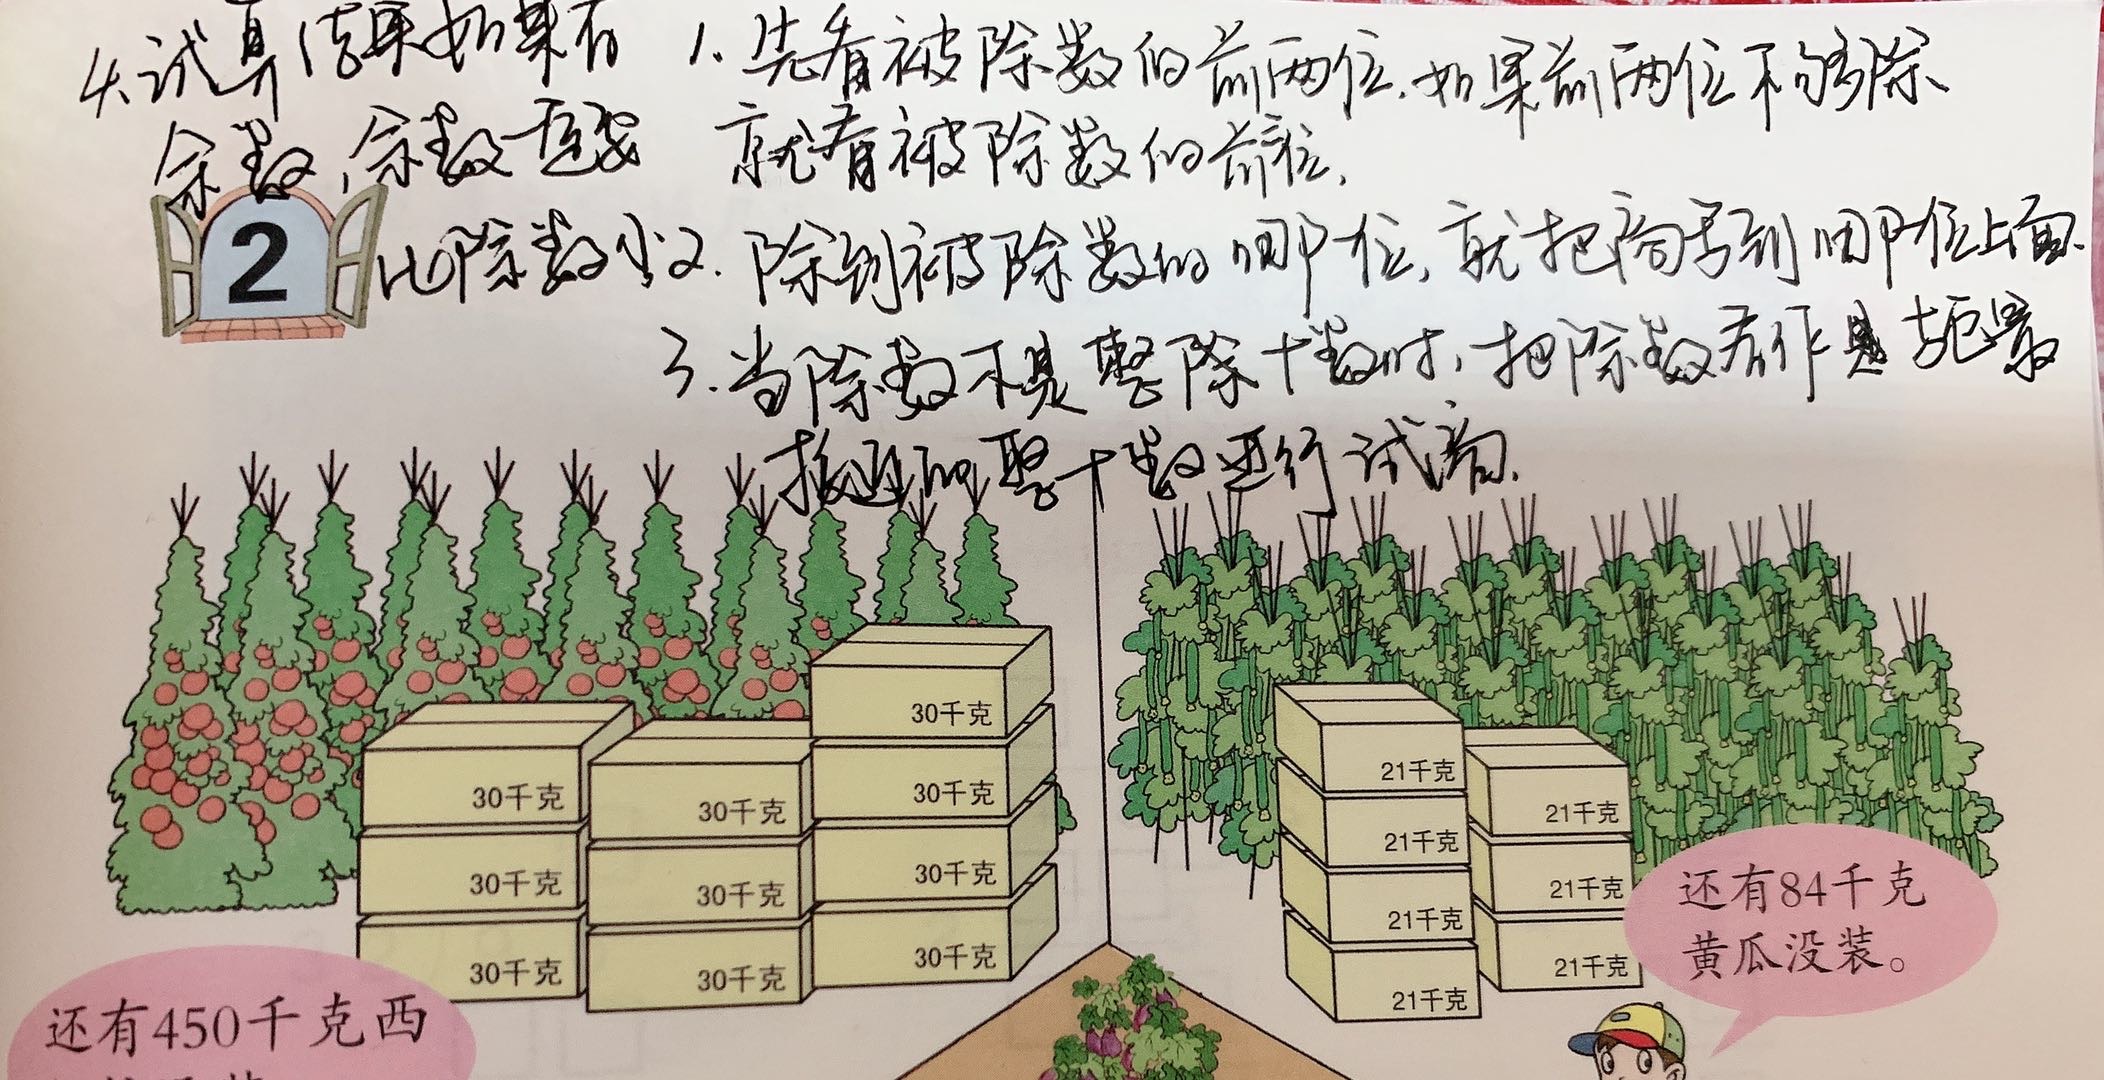 1.先看被除数的前两位,如果前两位不够除、
就看被除数的前
2.除到被除数的哪位,就把商写到哪位上面.
3.当除数不是整除十数时,把除数看作是
接近的整十数进行试商.
4.试算结果如果有
余数,余数一定要
比除数小
2
30千克
30千克
30千克
30千克
30千克
30千克
30千克
30千克
30千克
30千克
21千克
21千克
21千克
21千克
21千克
21千克
21千克
还有84千克
黄瓜没装。
还有450千克西